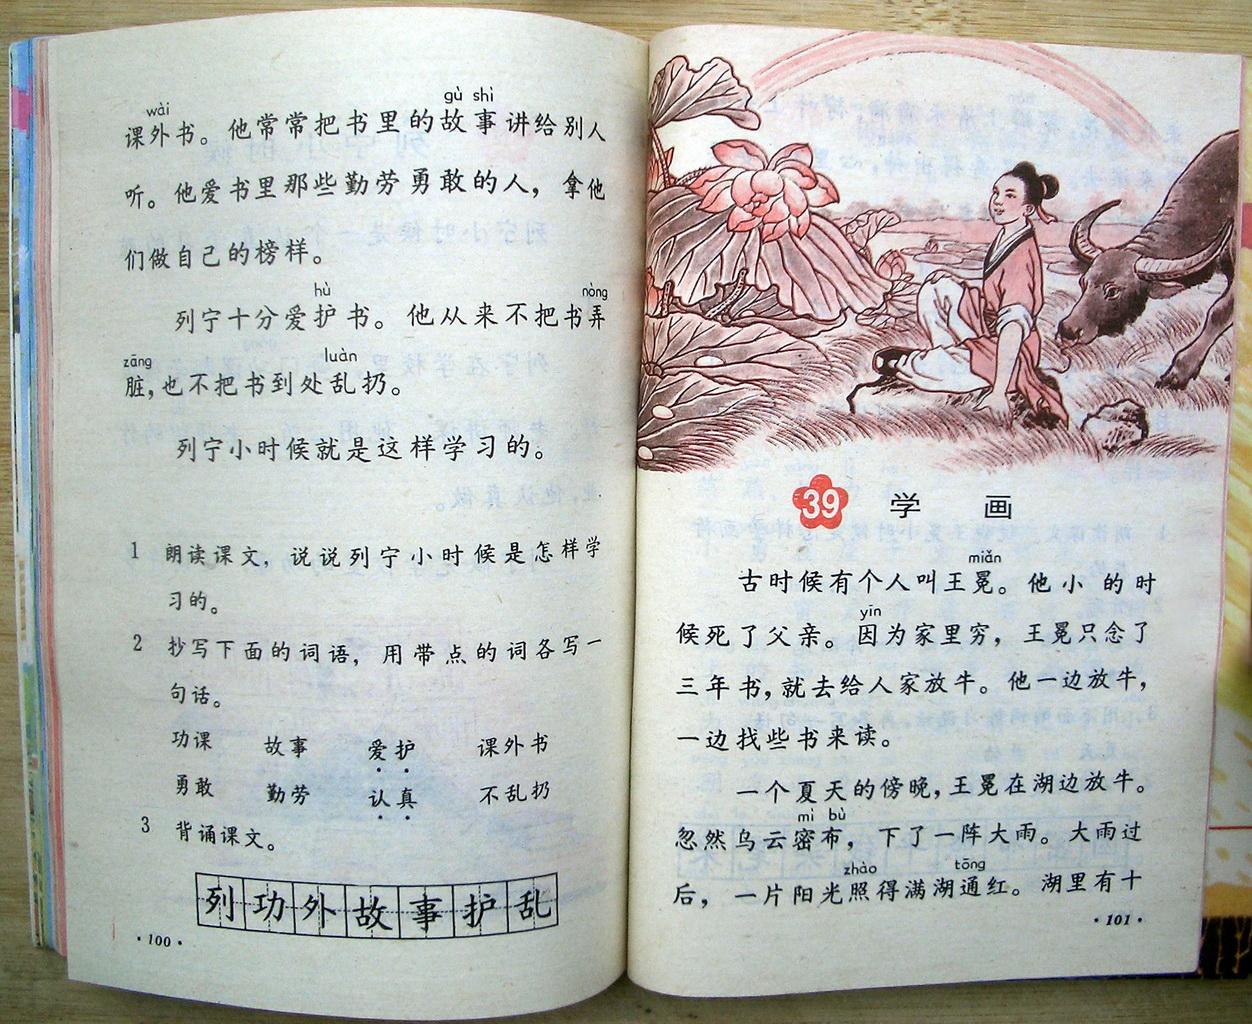 wài gù shì
课外书。他常常把书里的故事讲给别人
听。他爱书里那些勤劳勇敢的人，拿他
们做自己的榜样。
hù nòng
列宁十分爱护书。他从来不把书弄
zāng luàn
脏，也不把书到处乱扔。
列宁小时候就是这样学习的。
1 朗读课文，说说列宁小时候是怎样学
习的。
2 抄写下面的词语，用带点的词各写一
句话。
功课 故事 爱护 课外书
勇敢 勤劳 认真 不乱扔
3 背诵课文。
列功外故事护乱
·100·
39 学画
miǎn
古时候有个人叫王冕。他小的时
yīn
候死了父亲。因为家里穷，王冕只念了
三年书，就去给人家放牛。他一边放牛，
一边找些书来读。
一个夏天的傍晚，王冕在湖边放牛。
mì bù
忽然乌云密布，下了一阵大雨。大雨过
zhào tōng
后，一片阳光照得满湖通红。湖里有十
·101·